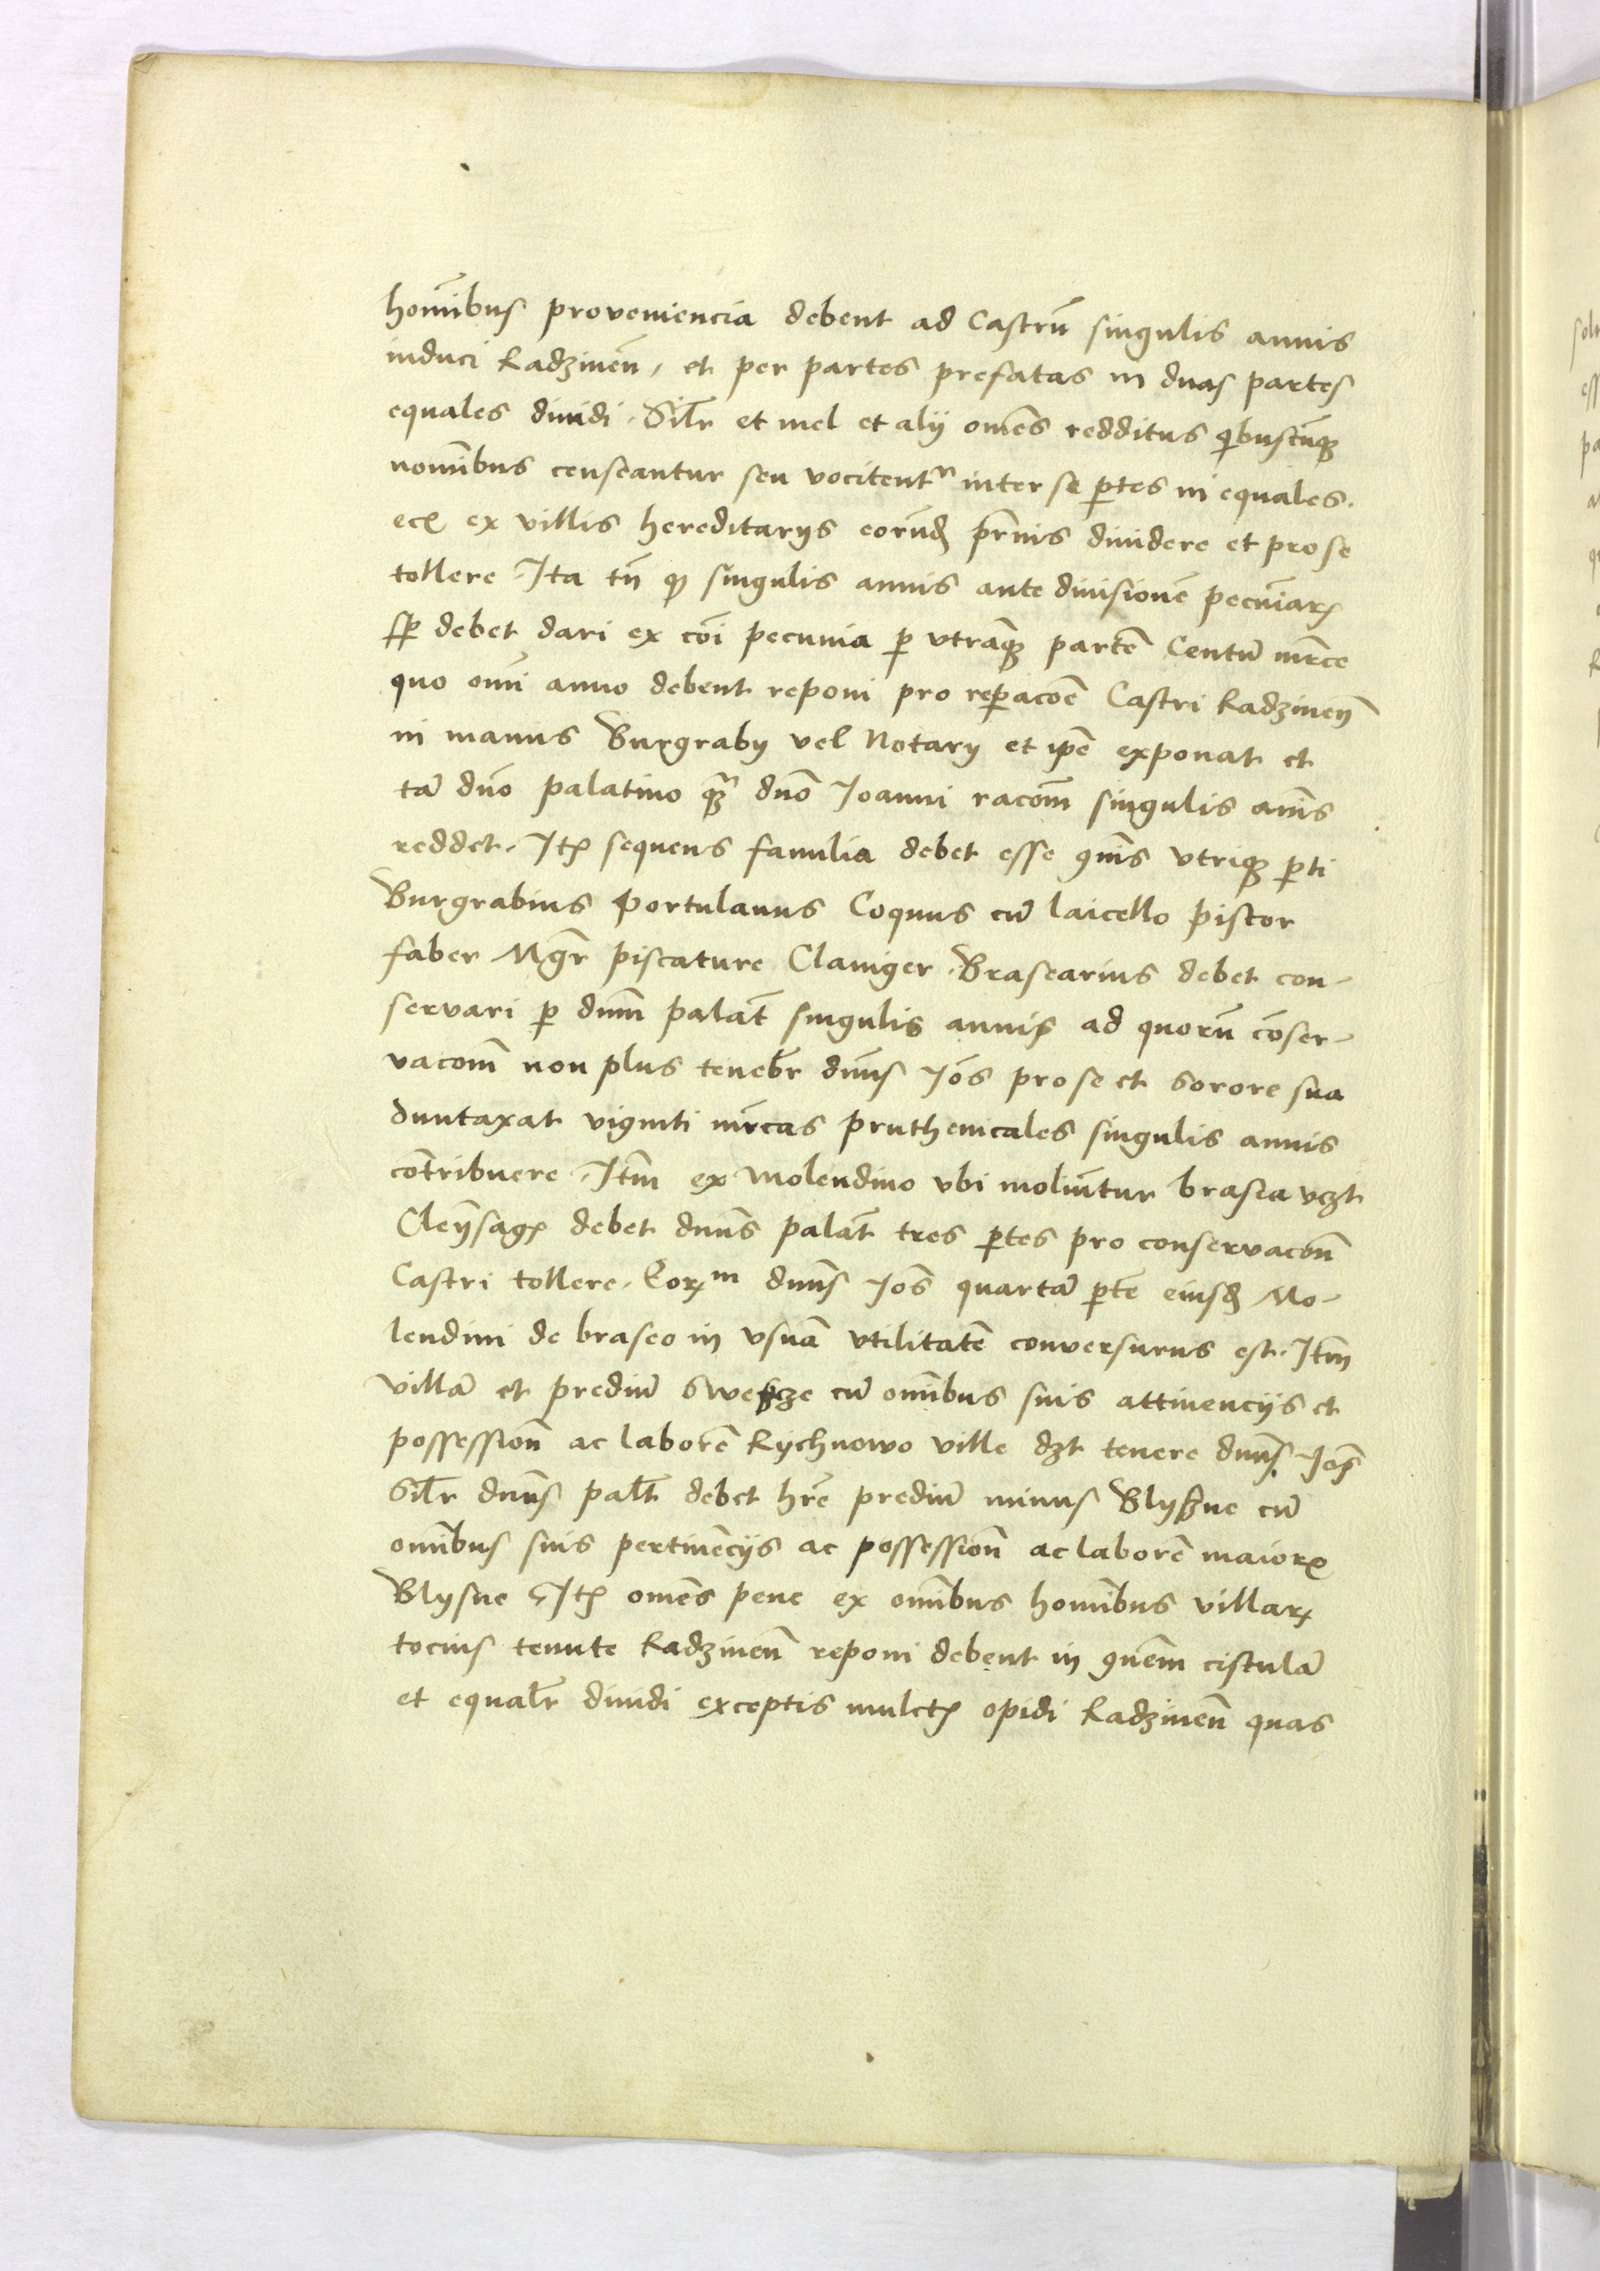 hom̄ibus proveniencia debent ad Castrū singulis annis
induci Radzineñ, et per partes prefatas in duas partes
equales dividi. Sil̄r et mel et alij om̄es redditus qibuscūqꝫ
nomībus censeantur seu vocitentʳ inter se ꝑtes in equales.
ecꝫ ex villis hereditarijs eorūdꝫ dividere et pro se
tollere. Ita tn̄ qꝫ singulis annis ante divisionē pecuniarꝝ
sꝑ debet dari ex cōi pecunia ꝑ vtrāqꝫ partē Centū mr̄ce
quo om̄i anno debent reponi pro reꝑacōe Castri Radzineñ
in manus Burgrabij vel Notarij et ip̄e exponat et
tā dn̄o palatino qꝫ̄ dn̄o Joanni racōm singulis an̄is
reddet. Itꝫ sequens familia debet esse ꝯm̄is vtriqꝫ ꝑti
Burgrabius Portulanus Coquus cū laicello pistor
faber Mgr̄ piscature Claviger. Brasearius debet con-
servari ꝑ dn̄m palāt singulis annis ad quorū cōser-
vacōm non plus teneb̄r dn̄us Joēs pro se et sorore sua
duntaxat viginti mr̄cas pruthenicales singulis annis
cōtribuere. Itm̄ ex molendino vbi moliūtur brasea vꝫt
Cleÿsagꝫ debet dn̄us palāt tres ꝑtes pro conservacōn
Castri tollere. Qorꝝᵐ dn̄us Joēs quartā ꝑtē eiusdꝫ Mo-
lendini de braseo in vsuā vtilitatē conversurus est. Itm̄
villā et prediū Swescze cū omībus suis attinencijs et
possessionē ac laborē Rychnowo ville dꝫt tenere dn̄us Joēs
Sil̄r dn̄us pal̄t debet hr̄e prediū minus Blyszne cū
omībus suis pertinēcijs ac possessionē ac laborē maiorꝫ
Blysne. Itꝫ om̄es pene ex omībus homībus villarꝝ
tocius tenute Radzineñ reponi debent in ꝯm̄em cistulā
et equal̄r dividi exceptis mulctꝫ opidi Radzineñ quas